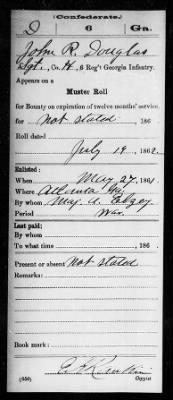 (Confederate.)
D 6 Ga.
John R. Douglas
Sgt., Co. H, 6 Reg't Georgia Infantry.
Appears on a
Muster Roll
for Bounty on expiration of twelve months' service,
for not stated, 186
Roll dated
July 19, 1862.
Enlisted:
When May 27, 1861.
Where Atlanta Ga.
By whom Maj. A.
Period War.
Last paid:
By whom
To what time , 186
Present or absent not stated
Remarks:
Book mark:
(650) Copyist.